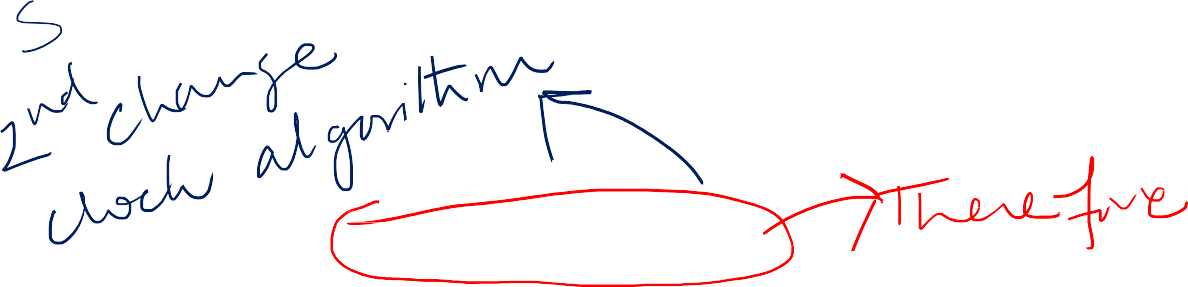 S
2nd change
clock algorithm
Therefore